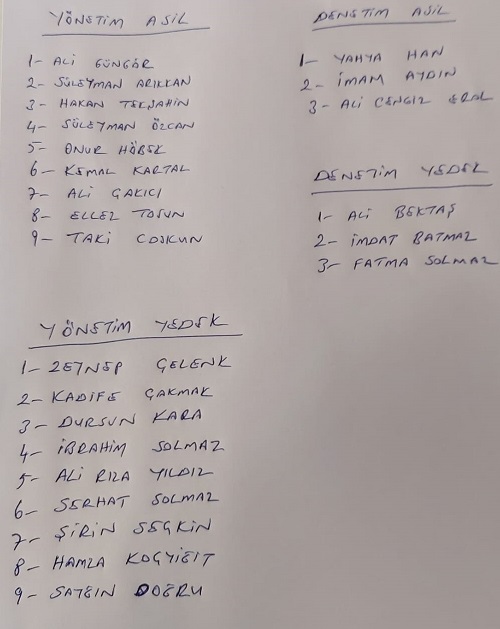 YÖNETİM ASİL
1- ALİ GÜNGÖR
2- SÜLEYMAN ARIKKAN
3- HAKAN TEKŞAHİN
4- SÜLEYMAN ÖZCAN
5- ONUR HÖBEK
6- KEMAL KARTAL
7- ALİ ÇAKICI
8- ELLEZ TOSUN
9- TAKİ COŞKUN
YÖNETİM YEDEK
1- ZEYNEP ÇELENK
2- KADİFE ÇAKMAK
3- DURSUN KARA
4- İBRAHİM SOLMAZ
5- ALİ RIZA YILDIZ
6- SERHAT SOLMAZ
7- ŞİRİN SEÇKİN
8- HAMZA KOÇYİĞİT
9- SATGIN DOĞRU
DENETİM ASİL
1- YAHYA HAN
2- İMAM AYDIN
3- ALİ CENGİZ ERAL
DENETİM YEDEK
1- ALİ BEKTAŞ
2- İMDAT BATMAZ
3- FATMA SOLMAZ